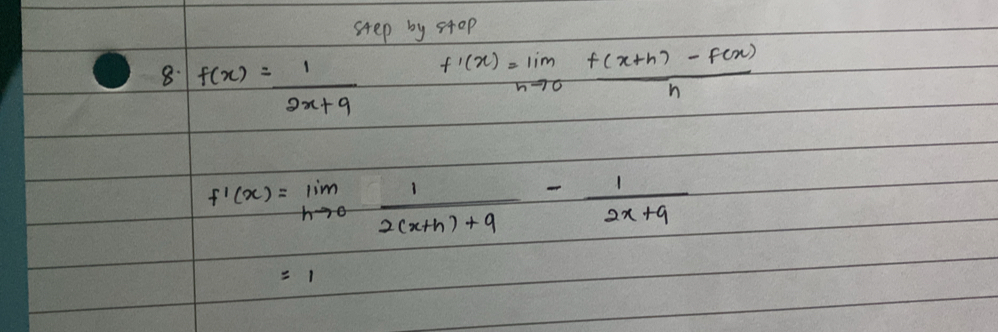 step by stop
8. f(x) = 1/(2x+9) f'(x) = lim h→0 (f(x+h) - f(x))/h
f'(x) = lim h→0 1/(2(x+h)+9) - 1/(2x+9)
= 1